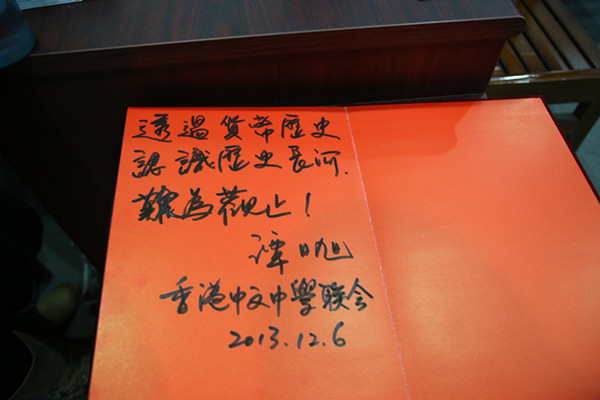 透過貨幣歷史
認識歷史長河.
難為觀止！
譚日旭
香港中文中學联会
2013.12.6